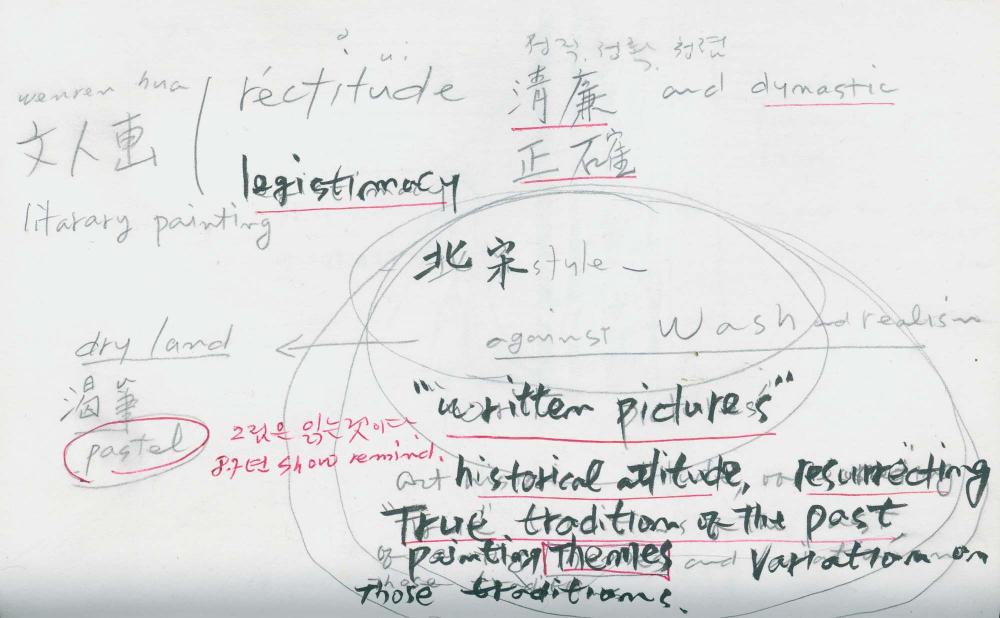 정직, 정확, 청렴
wenren hua
réctitude 清廉 and dynastic
文人画
legistimacy 正確
litarary painting
北宋 style
dry land against Wash and realism
渴筆
"written picturess"
pastel
그림은 읽는것이다.
87년 show remind.
art historical attitude, resurrecting
"True" traditions of the past
of painting themes and variation on
those traditions.